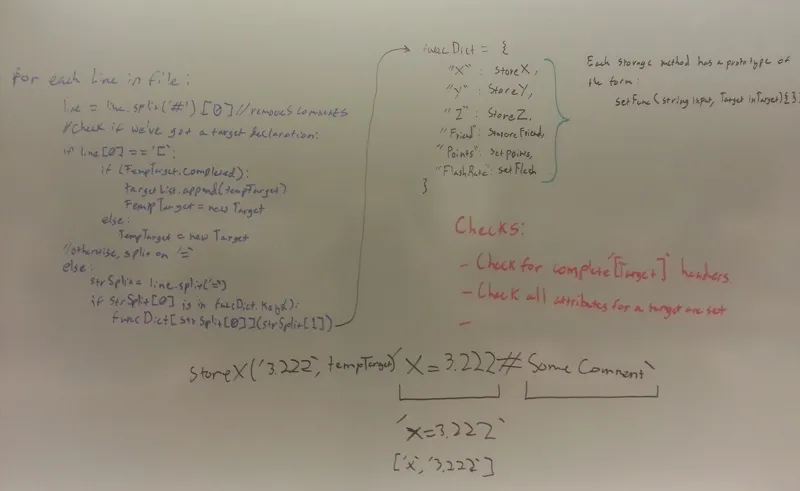 for each line in file:
line = line.split('#')[0] //removes comments
//Check if we've got a target declaration:
if line[0] == '[':
if (tempTarget.completed):
targetList.append(tempTarget)
tempTarget = new Target
else:
tempTarget = new Target
//otherwise, split on '='
else:
strSplit = line.split('=')
if strSplit[0] is in funcDict.keys():
funcDict[strSplit[0]](strSplit[1])
funcDict = {
"X" : StoreX,
"Y" : StoreY,
"Z" : StoreZ,
"Friend" :
"Points" : setpoints,
"FlashRate" : setFlash
}
Each storage method has a prototype of
the form:
setFunc(string input, Target inTarget){};
Checks:
- Check for complete '[Target]' headers
- Check all attributes for a target are set
-
storeX('3.222', tempTarget) 'X=3.222# Some Comment'
'X=3.222'
['x','3.222']